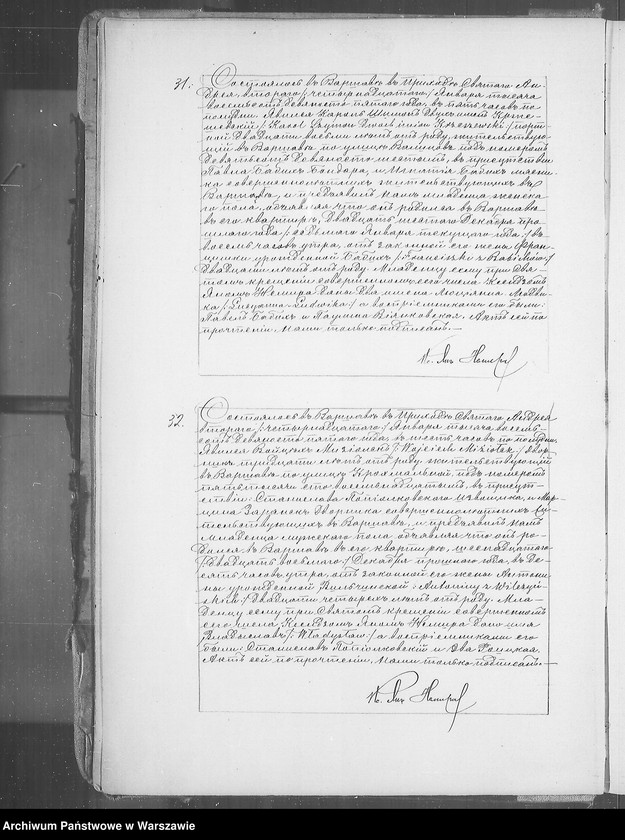 31.
Состоялось въ Варшавѣ въ Приходѣ Святаго Ан-
дрея, втораго /:четырнадцатаго:/ Января тысяча
восемьсотъ девяносто пятаго года, въ пять часовъ по
полудни. Явился Кароль Шимонъ двухъ именъ Крже-
шевскій /:Karol Szymon dwóch imion Krzeszewski:/ порт-
ной двадцати восьми лѣтъ отъ роду жительствую-
щій въ Варшавѣ по улицѣ подъ номеромъ
девятьсотъ девяносто шестымъ, въ присутствіи
Павла Бабихъ Бондара, и Игнатія Бабихъ мясни-
ка совершеннолѣтнихъ жительствующихъ въ
Варшавѣ, и предъявилъ намъ младенца женска-
го пола, объявляя что онъ родился въ Варшавѣ
въ его квартирѣ, двадцать шестого Декабря про-
шлаго года /:седьмого Января текущаго года:/ въ
восемь часовъ утра, отъ законной его жены Фран-
цишки урожденной Бабихъ /:Franciszki z Babichów:/
двадцати лѣтъ отъ роду. Младенцу сему при Свя-
томъ крещеніи совершенномъ сего числа Ксендзомъ
Яномъ Немира даны два имена Люціанна Людви-
ка /:Lucyanna Ludwika:/ а воспріемниками его были:
Павелъ Бабихъ и Паулина Актъ сей по
прочтеніи Нами только подписанъ.—
К. Янъ Немира
32.
Состоялось въ Варшавѣ въ Приходѣ Святаго Андрея
втораго /:четырнадцатаго:/ Января тысяча восемь-
сотъ девяносто пятаго года, въ шесть часовъ по полудни.
Явился Войцѣхъ Мизіолекъ /:Wojciech Miziołek:/ двор-
никъ тридцати лѣтъ отъ роду жительствующій
въ Варшавѣ по улицѣ Крохмальной подъ номеромъ
пять тысячъ сто восемнадцатымъ, въ присут-
ствіи: Станислава Извощика, и Мар-
цина Дворника совершеннолѣтнихъ жи-
тельствующихъ въ Варшавѣ, и предъявилъ намъ
младенца мужескаго пола объявляя что онъ ро-
дился въ Варшавѣ въ его квартирѣ, шестнадцатого
/:двадцать восьмого:/ Декабря прошлаго года, въ де-
сять часовъ утра, отъ законной его жены Антони-
ны урожденной Вильчинской /:Antoniny z Wilczyń-
skich:/ двадцати четырехъ лѣтъ отъ роду. Мла-
денцу сему при Святомъ крещеніи совершенномъ
сего числа Ксендзомъ Яномъ Немира дано имя
Владыславъ /:Władysław:/ а воспріемниками его
были: Станиславъ и Эва
Актъ сей по прочтеніи Нами только подписанъ.—
К. Янъ Немира
Archiwum Państwowe w Warszawie